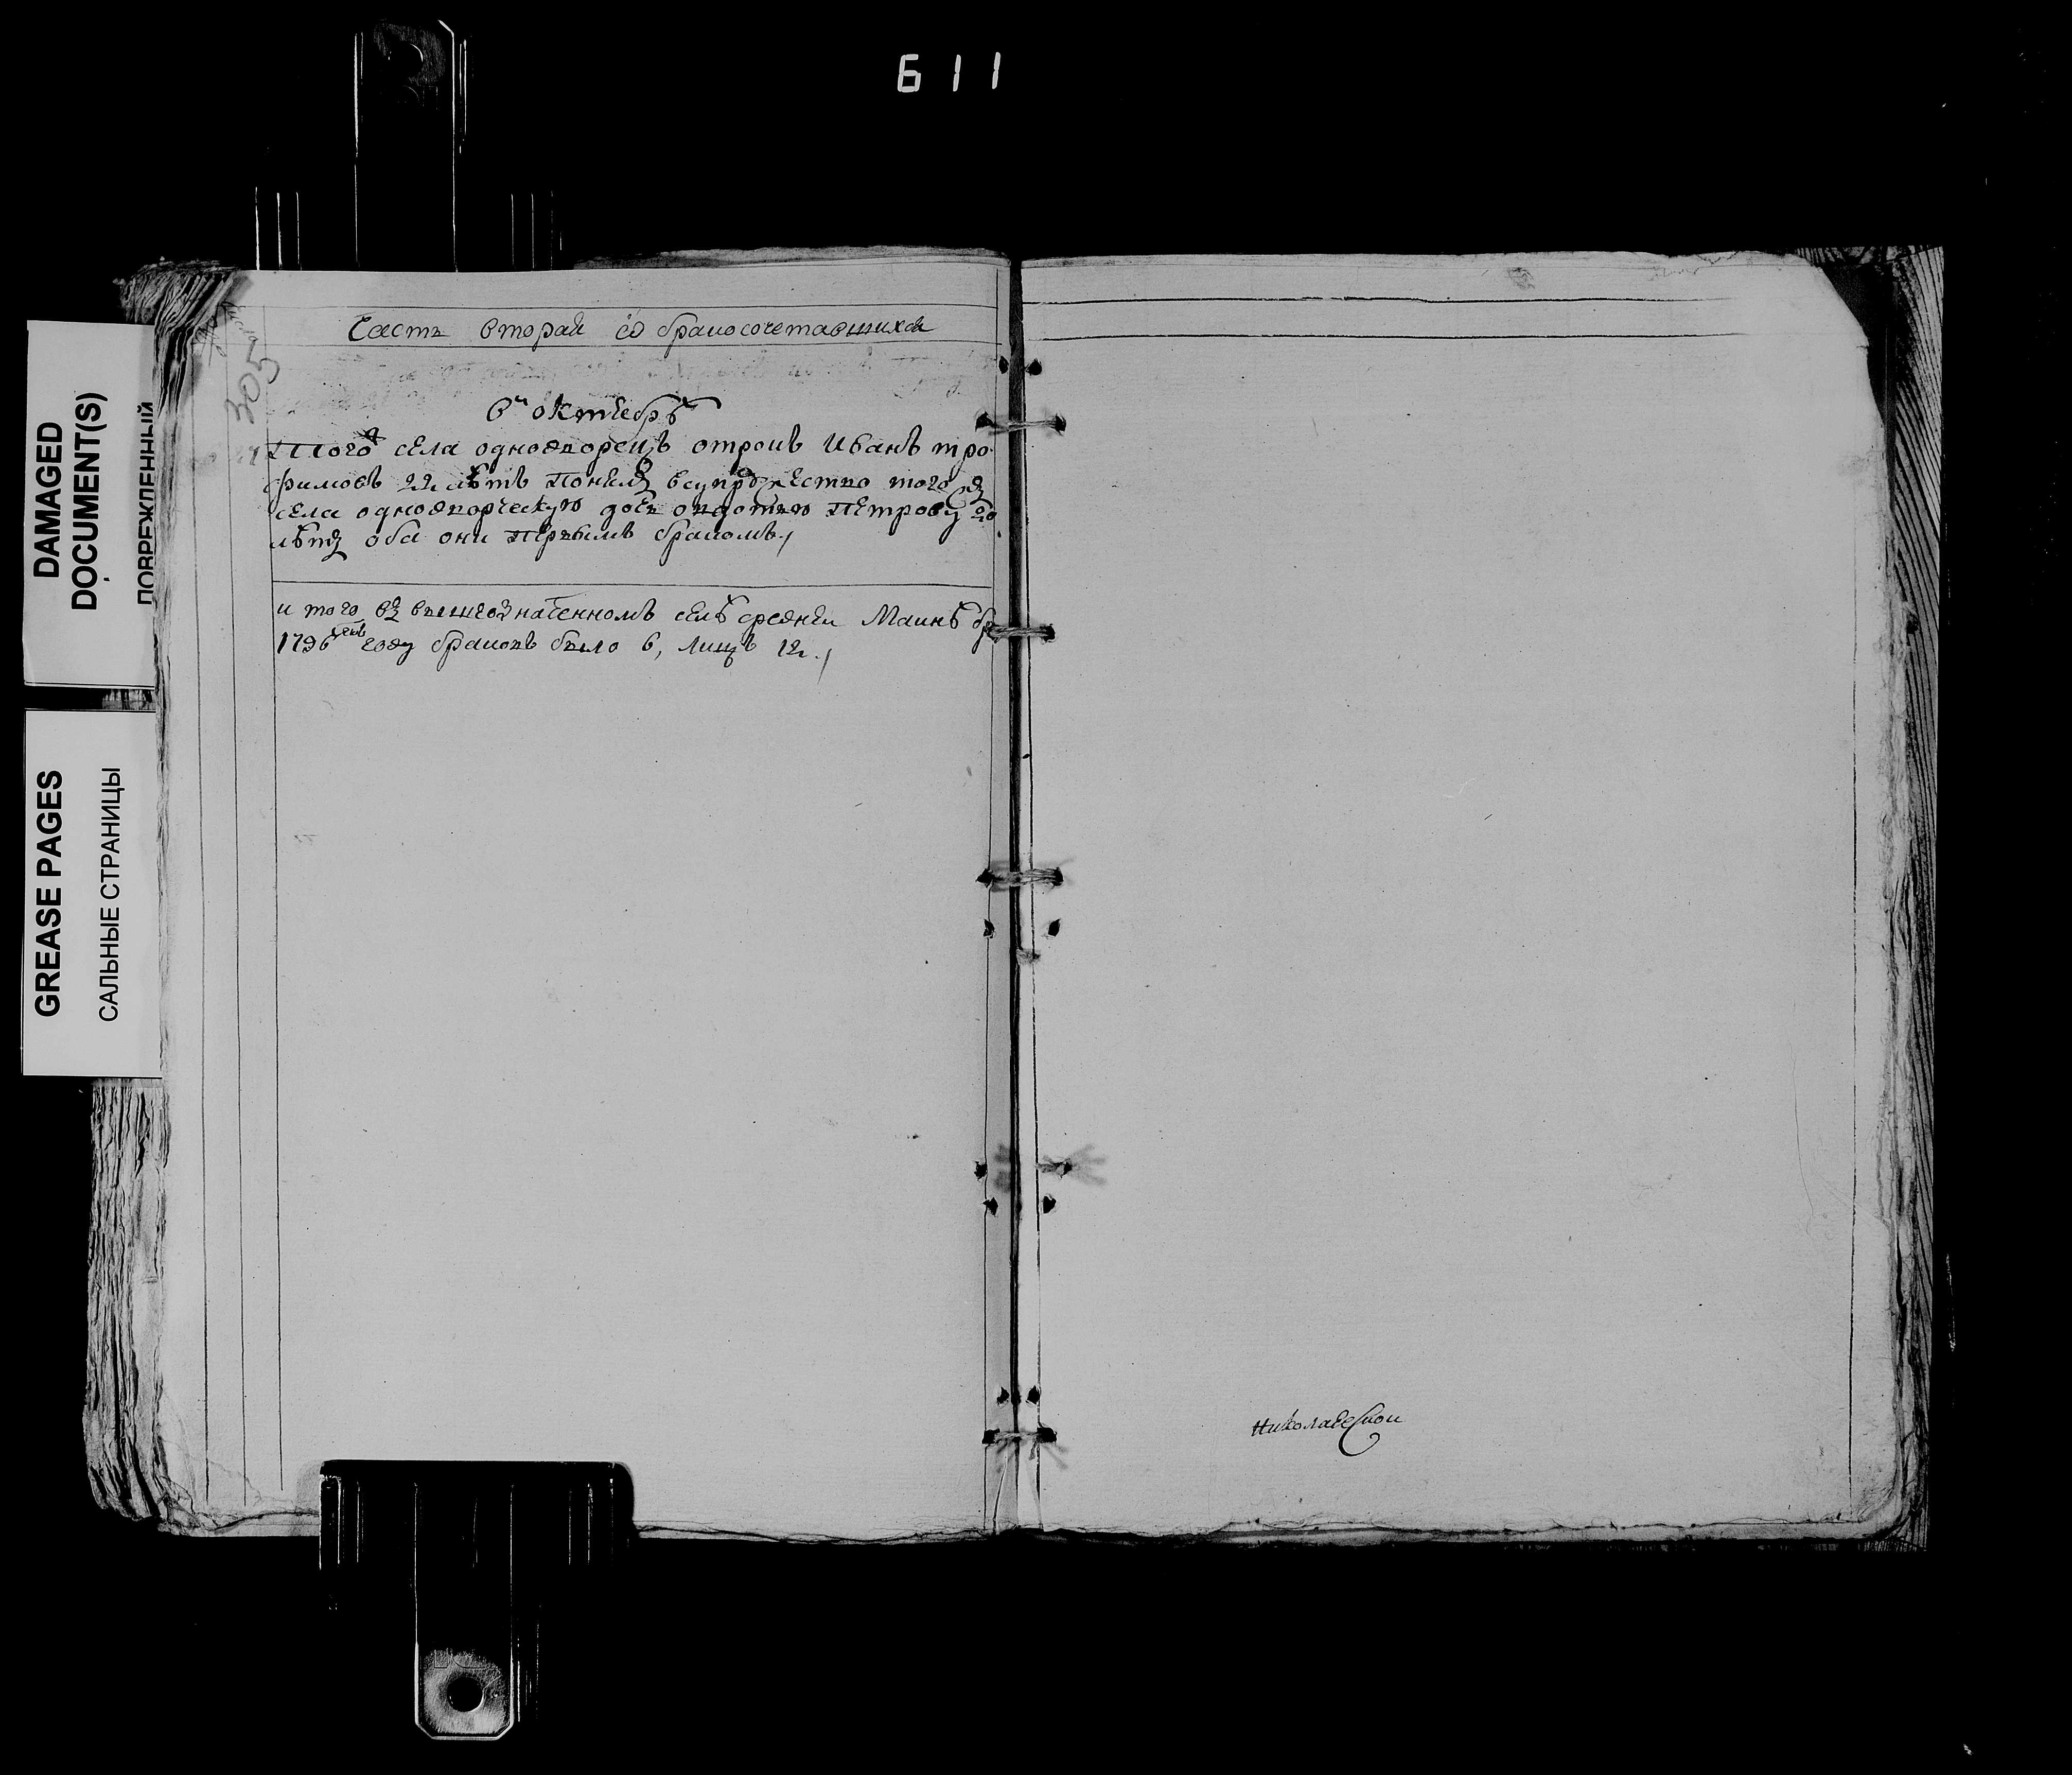 611
DAMAGED
DOCUMENT(S)
ПОВРЕЖДЕННЫЙ
GREASE PAGES
САЛЬНЫЕ СТРАНИЦЫ
305
Часть вторая ѡ бракосочетавшихся
в октебрѣ
Того села однодворецъ отрокъ Иванъ тро
фимовъ 22 лѣтъ Понялъ всупружество того же
села однодворческую дочь Петрову 20
лѣтъ оба они Первымъ бракомъ
и того въ вышеозначенномъ селѣ средней Маинѣ въ
1796 году браковъ было 6, лицъ 12
Николаевскои